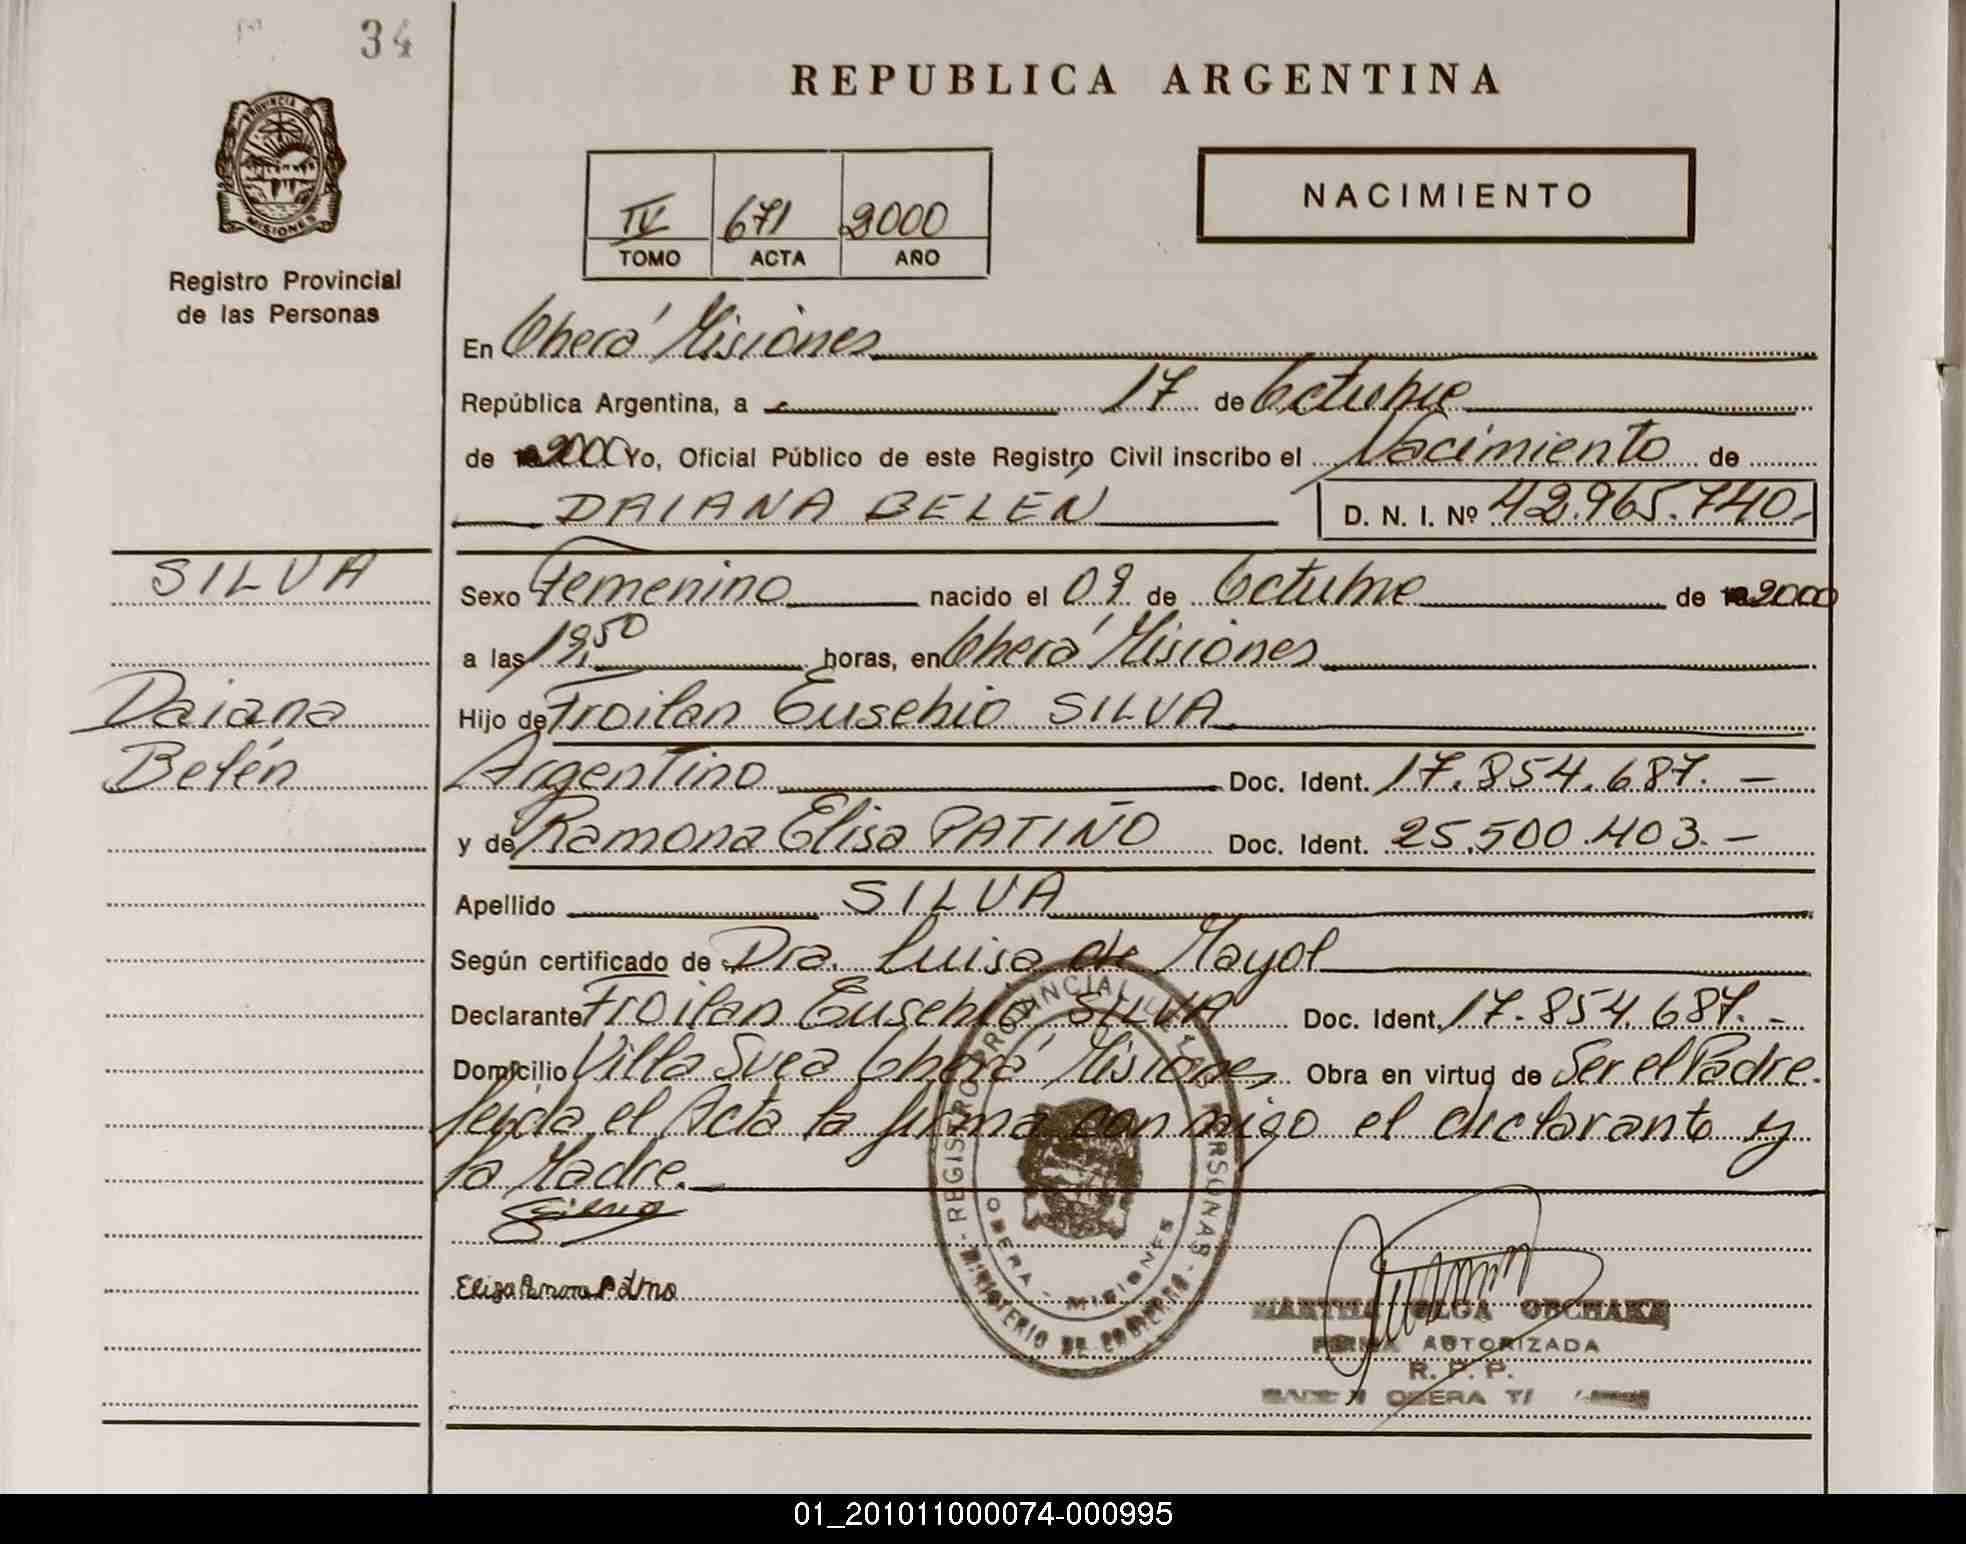 34
REPUBLICA ARGENTINA
PROVINCIA DE
MISIONES
Registro Provincial
de las Personas
IV 671 2000
TOMO ACTA AÑO
NACIMIENTO
En Oberá Misiones
República Argentina, a 17 de Octubre
de 2000 Yo, Oficial Público de este Registro Civil inscribo el Nacimiento de
DAIANA BELEN D. N. I. Nº 42.965.740.-
SILVA
Daiana
Belén
Sexo Femenino nacido el 09 de Octubre de 2000
a las 19,50 horas, en Oberá Misiones
Hijo de Froilan Eusebio SILVA
Argentino Doc. Ident. 17.854.687.-
y de Ramona Elisa PATIÑO Doc. Ident. 25.500.403.-
Apellido SILVA
Según certificado de Dra. Luisa de Mayol
Declarante Froilan Eusebio SILVA Doc. Ident. 17.854.687.-
Domicilio Villa Svea Oberá Misiones Obra en virtud de Ser el Padre.
Leida el Acta la firma conmigo el declarante y
la Madre.
REGISTRO PROVINCIAL DE LAS PERSONAS
OBERA - MISIONES
MINISTERIO DE GOBIERNO
Eliza Ramona Patino
MARTHA OLGA
FIRMA AUTORIZADA
R. P. P.
OBERA
01_201011000074-000995